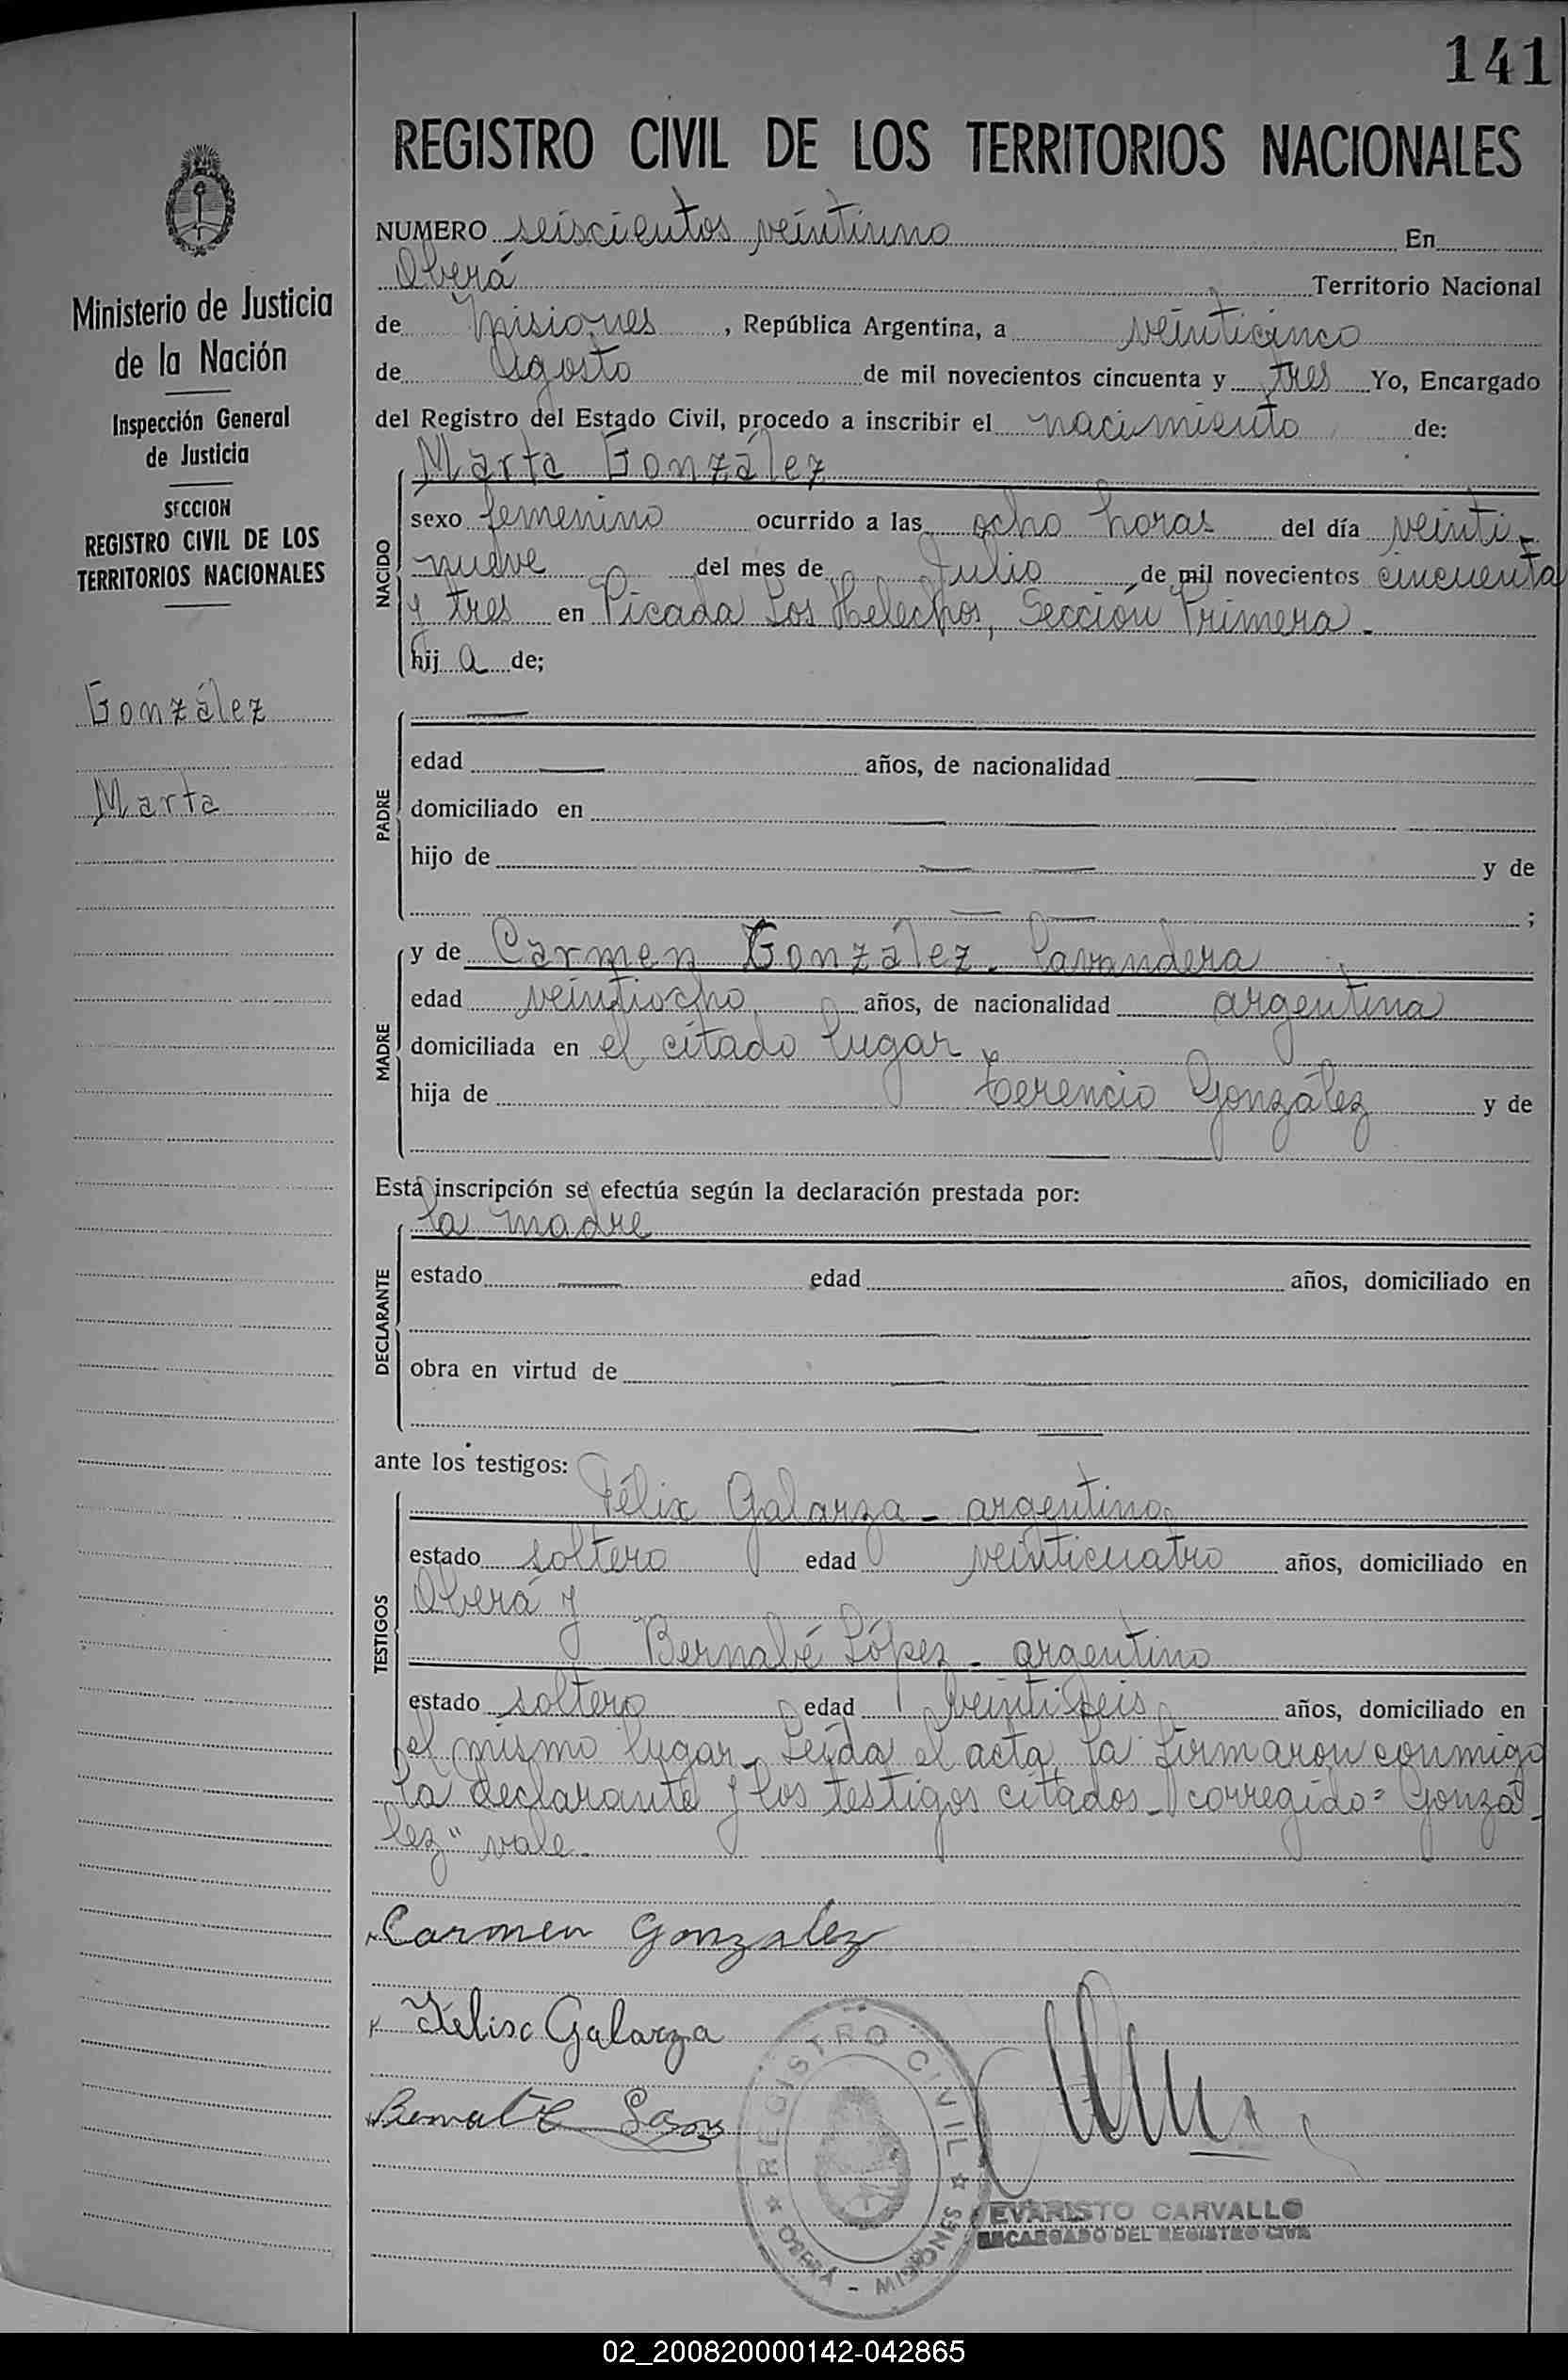 141
REGISTRO CIVIL DE LOS TERRITORIOS NACIONALES
Ministerio de Justicia
de la Nación
Inspección General
de Justicia
SECCION
REGISTRO CIVIL DE LOS
TERRITORIOS NACIONALES
González
Marta
NUMERO seiscientos veintiuno En
Oberá Territorio Nacional
de Misiones, República Argentina, a veinticinco
de Agosto de mil novecientos cincuenta y tres Yo, Encargado
del Registro del Estado Civil, procedo a inscribir el nacimiento de:
NACIDO
Marta González
sexo femenino ocurrido a las ocho horas del día veinti-
nueve del mes de Julio de mil novecientos cincuenta
y tres en Picada Los Helechos, Sección Primera.-
hij a de;
PADRE
edad años, de nacionalidad
domiciliado en
hijo de y de
;
MADRE
y de Carmen González. Lavandera
edad veintiocho años, de nacionalidad argentina
domiciliada en el citado lugar
hija de Terencio González y de
Está inscripción se efectúa según la declaración prestada por:
DECLARANTE
la madre
estado edad años, domiciliado en
obra en virtud de
ante los testigos:
TESTIGOS
Félix Galarza - argentino
estado soltero edad veinticuatro años, domiciliado en
Oberá y
Bernabé López - argentino
estado soltero edad veintiseis años, domiciliado en
el mismo lugar. Leída el acta, la firmaron conmigo
la declarante y los testigos citados - corregido = Gonzá-
lez" vale.
Carmen Gonzalez
Felix Galarza
Bernabé
REGISTRO CIVIL
OBERÁ - MISIONES
EVARISTO CARVALLO
ENCARGADO DEL REGISTRO CIVIL
02_200820000142-042865